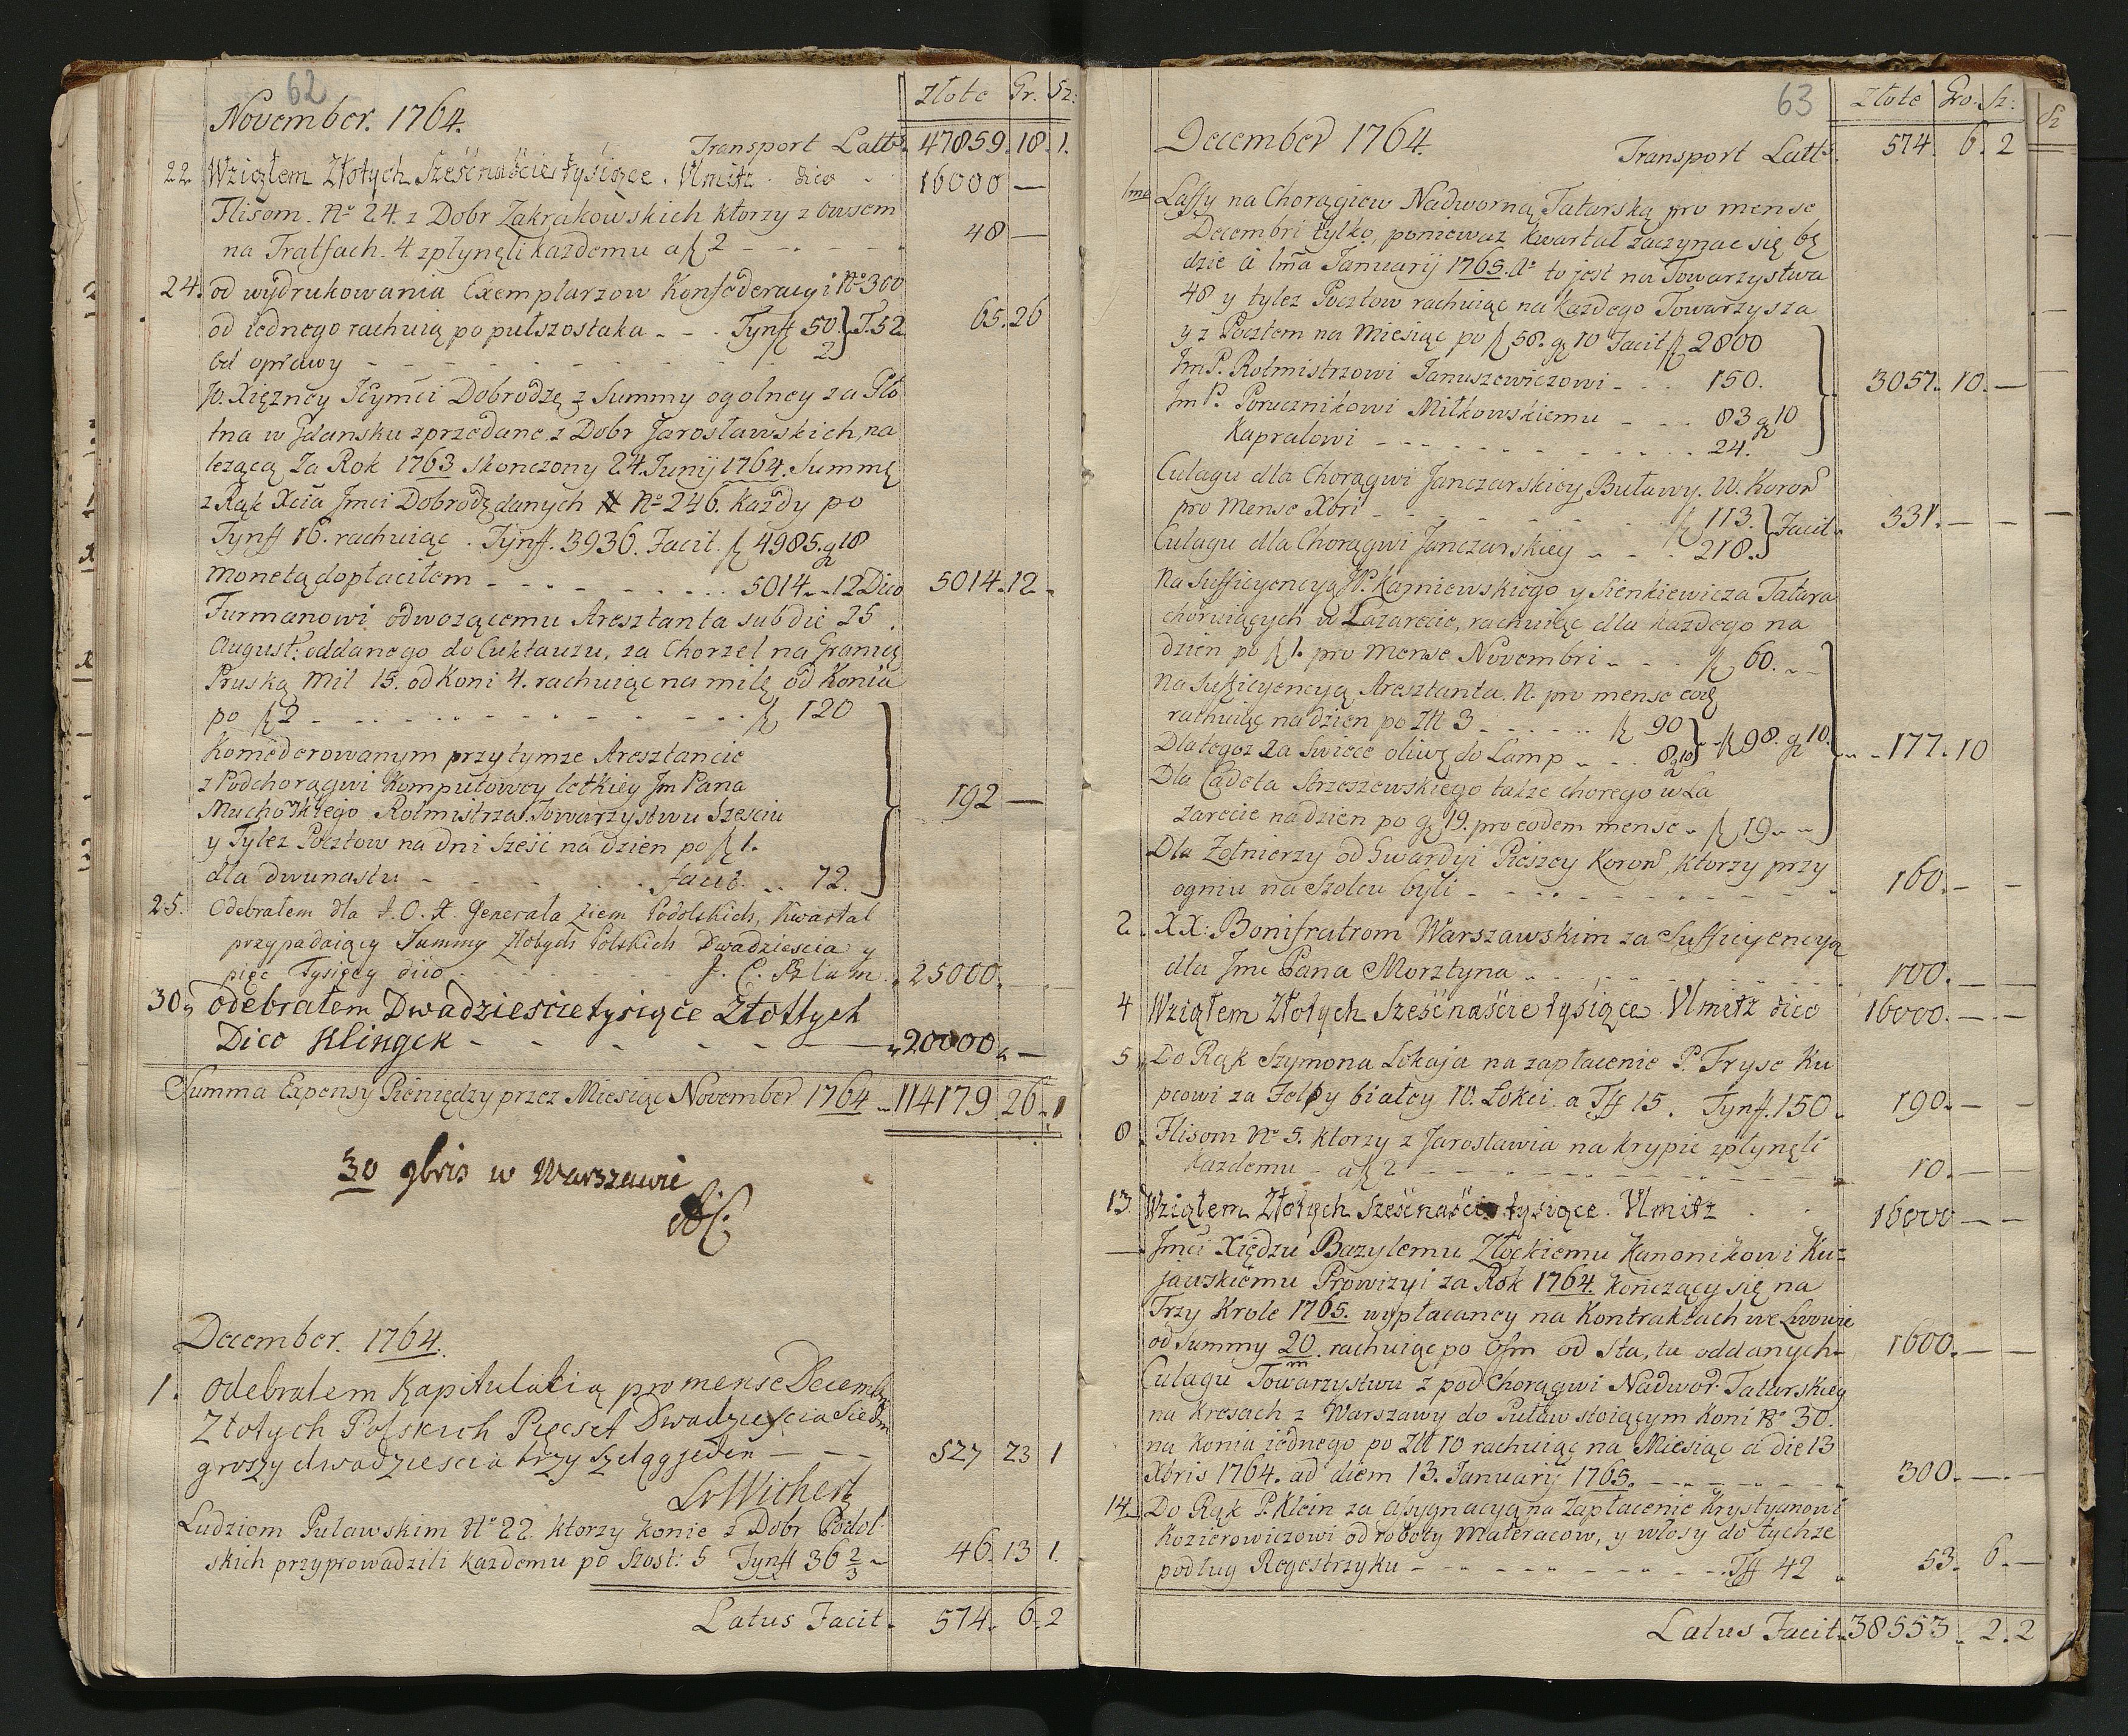 62
Złote Gr. Sz:
November. 1764.
Transport Latts. 47859. 18. 1.
22. Wziąłem Złotych Sześćnaście tysięce. Ulmitz. dico - 16000 —
Flisom. No 24. z Dobr Zakrakowskich ktorzy z owsem
na Tratfach. 4. zpłynęli każdemu a f 2 - - - - - 48 —
24. od wydrukowania Exemplarzow Konfederacyi No 300
od iednego rachuią po pułszostaka - - . Tynff 50. } T. 52 65. 26
od oprawy - - - - - - - 2.
Jo. Xięzney Jeymci Dobrodzę z Summy ogolney za Pło
tna w Gdansku zprzedane z Dobr Jarosławskich, na
lezącą za Rok 1763 skonczony 24. Junij 1764. Summę
z Rąk Xcia Jmci Dobrodz danych No 246. każdy po
Tynff 16. rachuiąc. Tynff. 3936. Facit. f 4985. g 18
monetą dopłaciłem - - - - - - - 5014 - - 12 Dico 5014. 12 -
Furmanowi odwozącemu Aresztanta sub die 25
August: oddanego do Cuktauzu, za Chorzel na Granicę
Pruską mil 15. od Koni 4. rachuiąc na milę od Konia
po f 2 - - - - - - - - - - f 120
Komęderowanym przy tymze Aresztancie
z Podchorągwi Komputowey letkiey Jm Pana
Muchoskiego Rotmistrza Towarzystwu Szesciu 192 —
y Tylez Pocztow na dni sześć na dzien po f 1.
dla dwunastu - - - - - - . facit. . . 72.
25. Odebrałem dla J. O. X. Generała Ziem Podolskich, Kwartał
przypadaiący Summy Złotych Polskich Dwadziescia y
pięć Tysięcy dico - - - - - - - J. C. Blum. 25000. — -
30. odebrałem Dwadziescie tysięce Złottych
Dico Klingek - - - - - - — 20000. —
Summa Expensy Pieniędzy przez Miesiąc November 1764 - 114179. 26. 1
30 9bris w Warszawie
December. 1764.
1. Odebrałem Kapitulatią pro mense Decembr
Złotych Polskich Pięcset Dwadziescia Siedm
groszy dwadziescia trzy szeląg jeden — — — 527 23 1
LvWichert
Ludziom Puławskim No 22. ktorzy konie z Dobr Podol:
skich przyprowadzili każdemu po Szost: 5 Tynff 36 2/3 - 46. 13 1.
Latus Facit. 574. 6. 2
63
Złote Gro. Sz:
December 1764.
Transport Latts. 574. 6. 2
1ma Laffy na Chorągiew Nadworną Tatarską pro mense
Decembri tylko, poniewaz kwartał zaczynac się bę
dzie a 1ma Januarij 1765. Ao to jest na Towarzystwa
48 y tylez Pocztow rachuiąc na każdego Towarzysza
y z Pocztem na Miesiąc po f 58. g 10 Facit f 2800
Jm P. Rotmistrzowi Januszewiczowi - . . 150. 3057. 10. —
Jm P. Porucznikowi Miłkowskiemu - . . 83 g 10
Kapralowi - - - . . . . . . . 24.
Culagu dla Chorągwi Janczarskiey Buławy. W. Koron
pro mense Xbri - - - - - - - f 113. } Facit. 331. — —
Culagu dla Chorągwi Janczarskiey - - . 218.
Na Sufficyencyą P. Karniewskiego y Sienkiewicza Tatara
choruiących w Lazarecie, rachuiąc dla każdego na
dzien po f 1. pro mense Novembri - . - f 60. - -
Na Sufficyencyą Aresztanta. N. pro mense eod
rachuiąc na dzien po Zll 3 - . . . . . f 90
Dla tegoz za Swiece oliwę do Lamp - . . 8 g 10 } f 98. g 10. - - 177. 10
Dla Cadeta Strzeszewskiego takze chorego w La
zarecie na dzien po g 19. pro eodem mense - f 19. - -
Dla Zołnierzy od Gwardyi Pieszey Koron, ktorzy przy
ogniu na Szolcu byli - - - - - - - - 160. — —
2. XX: Bonifratrom Warszawskim za Sufficyencyą
dla Jmć Pana Morsztyna - - . . - . . . . . 100. — —
4 Wziąłem Złotych Sześćnaście tysięce. Ulmitz dico 16000. — —
5. Do Rąk Szymona Lokaja na zapłacenie P. Fryse Ku
pcowi za Felpy białey 10. Łokci. a Tff 15. Tynff. 150. 190. — —
8. Flisom No 5. ktorzy z Jarosławia na krypie zpłynęli
każdemu - a f 2 - - - - - - - - 10. — —
13. Wziąłem Złotych Sześćnaście tysięce. Ulmitz . . 16000 — —
— Jmći Xiędzu Bazylemu Złockiemu Kanonikowi Ku=
jawskiemu Prowizyi za Rok 1764. konczący się na
Trzy Krole 1765. wypłacaney na Kontraktach we Lwowie
od Summy 20/m. rachuiąc po Osm od sta, tu oddanych. 1600. — —
Culagu Towarzystwu z pod Chorągwi Nadwor. Tatarskiey
na Kresach z Warszawy do Puław stoiącym Koni No 30.
na Konia iednego po Zll 10 rachuiąc na Miesiąc a die 13
Xbris 1764. ad diem 13. Januarij 1765. - - - - - - 300. — —
14. Do Rąk P. Klein za Assygnacyą na zapłacenie Krystyanowi
Kozierowiczowi od roboty Materacow, y włosy do tychze
podług Regestrzyku - - - - - - - - Tff 42 53. 6. —
Latus Facit. 38553. 2. 2
Sz